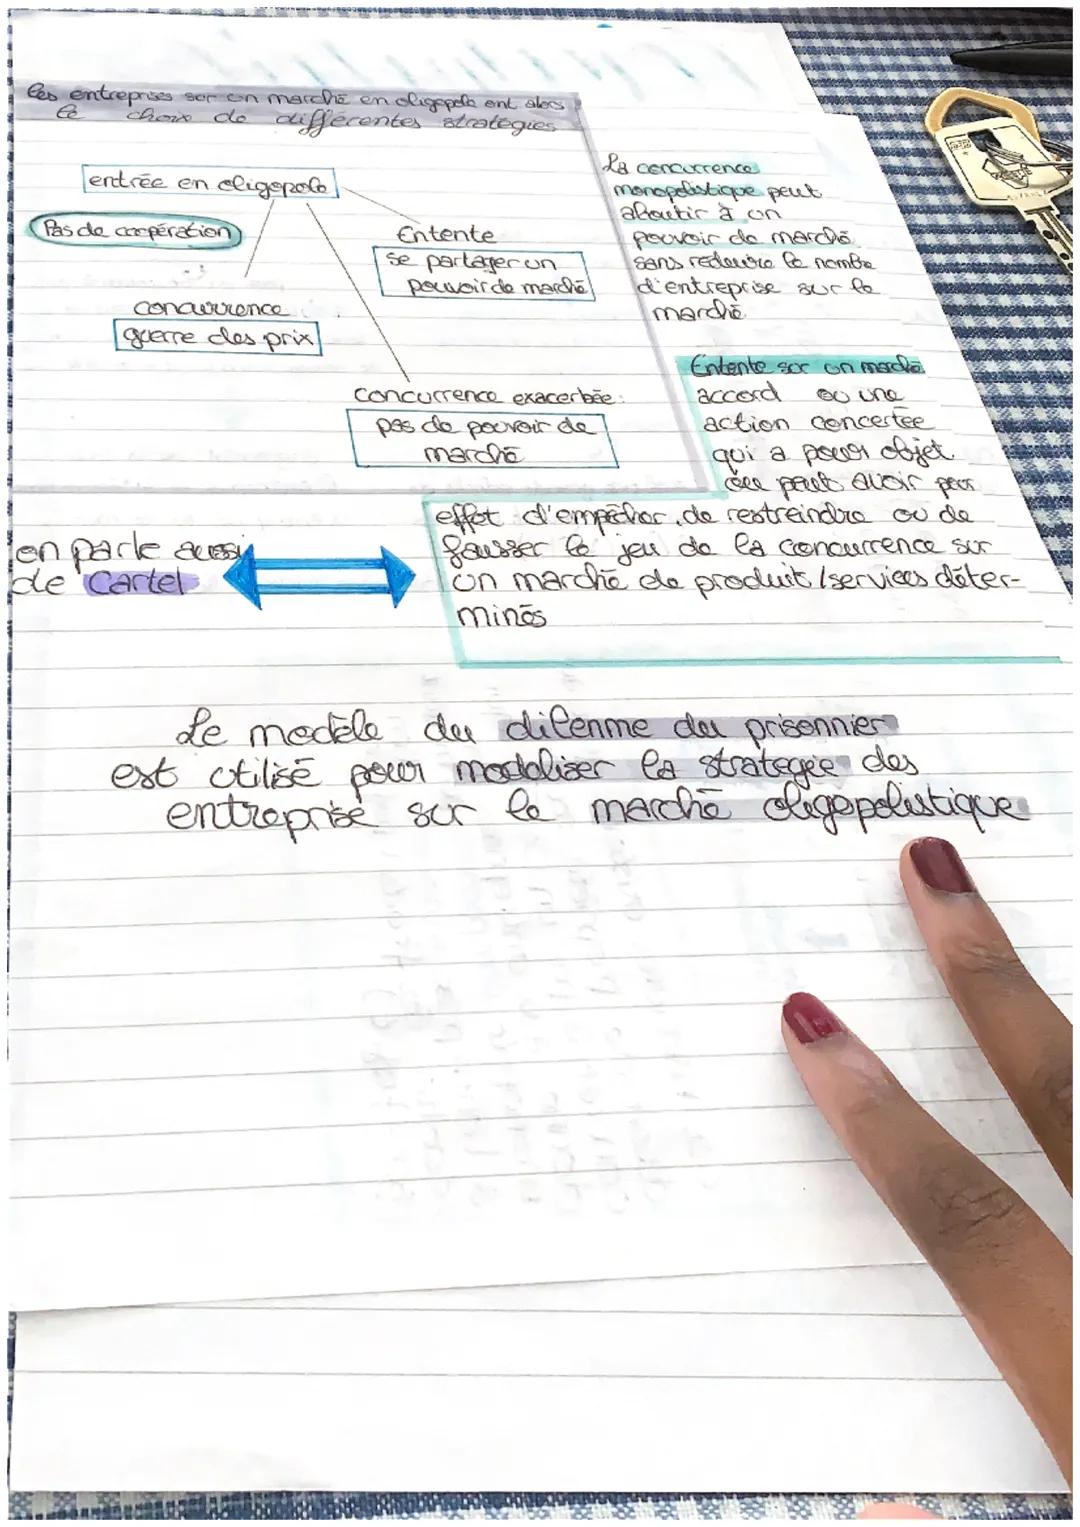 les entreprises sur un marché en oligopole ont alors
le choix de différentes stratégies
entrée en oligopole
Pas de coopération
Entente
se partager un
pouvoir de marché
concurrence
guerre des prix
concurrence exacerbée:
pas de pouvoir de
marché
La concurrence
monopolistique peut
aboutir à un
pouvoir de marché
sans réduire le nombre
d'entreprise sur le
marché
Entente sur un marché
accord ou une
action concertée
qui a pour objet
ou peut avoir pour
effet d'empêcher, de restreindre ou de
fausser le jeu de la concurrence sur
un marché de produit/services déter-
minés
on parle aussi
de Cartel
Le modèle du dilenme du prisonnier
est utilisé pour modéliser la stratégie des
entreprise sur le marché oligopolistique